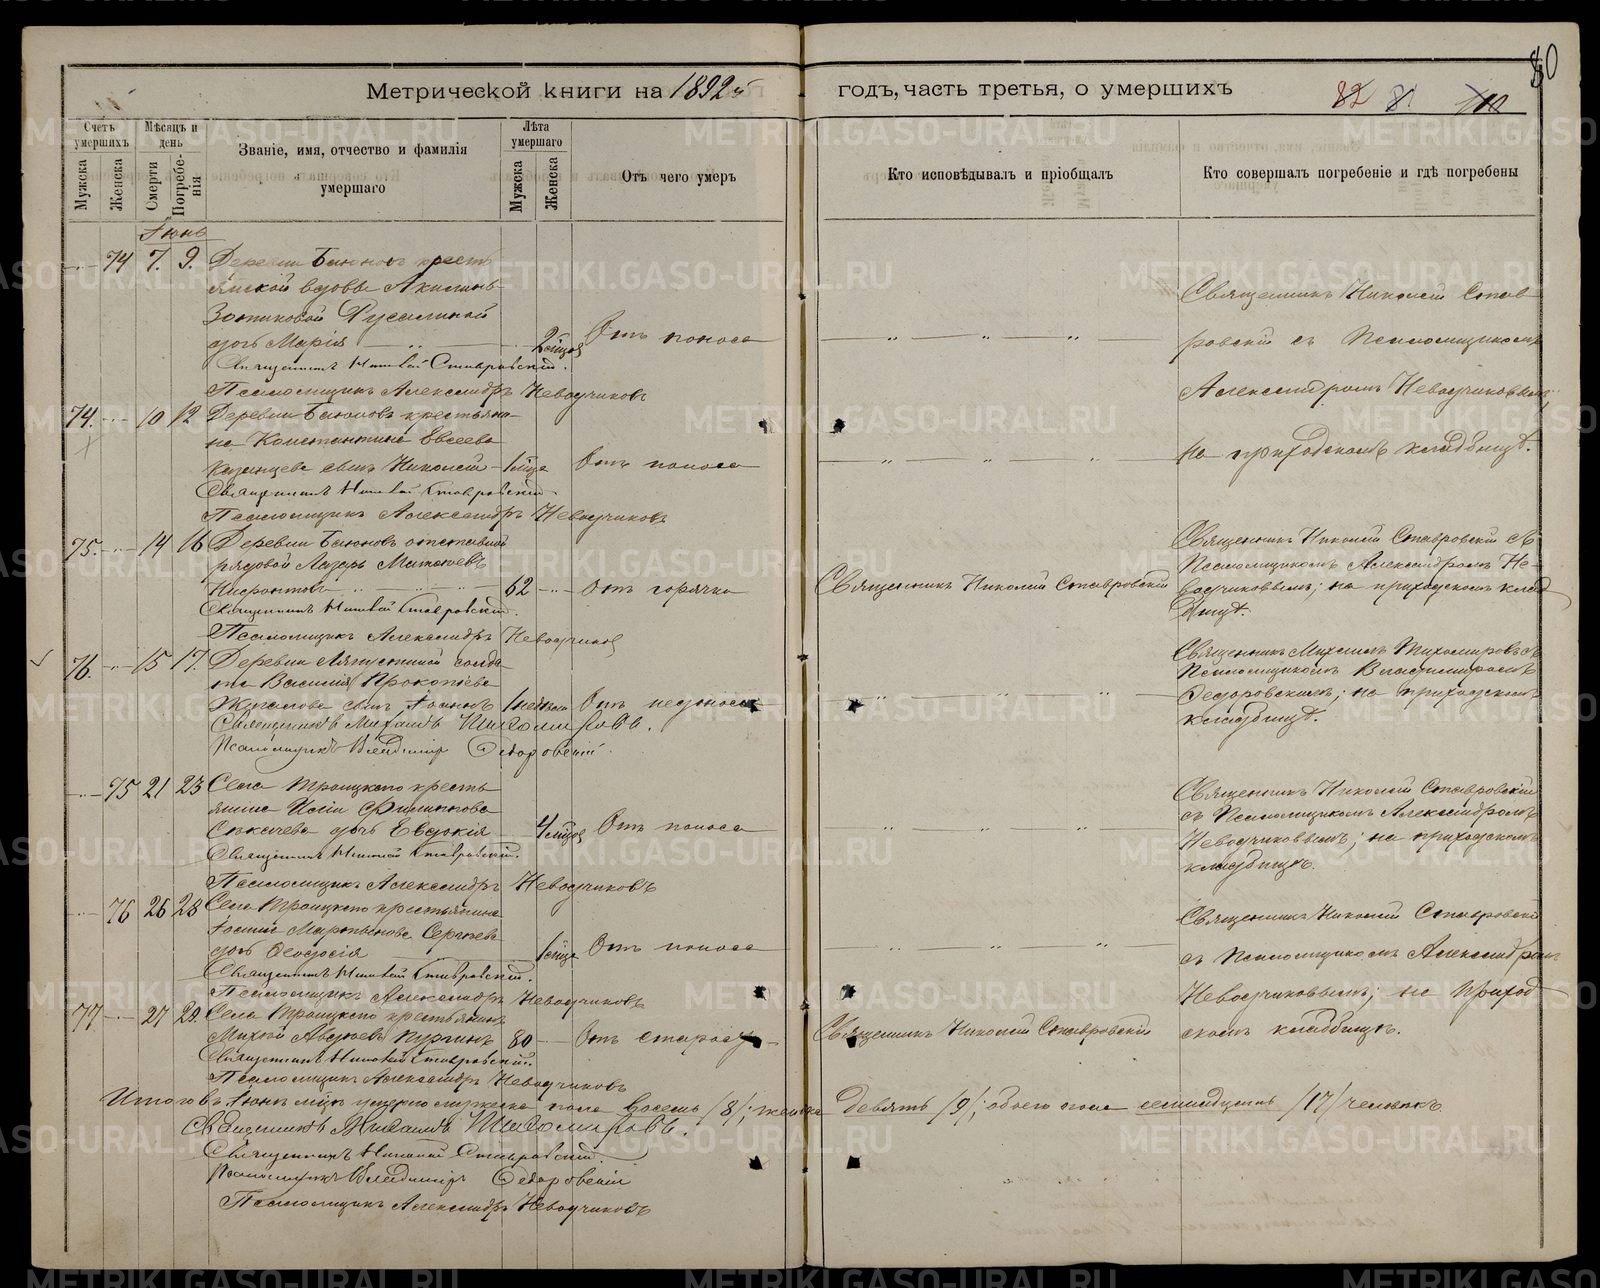 80
Метрической книги на 1892й
годъ, часть третья, о умершихъ
82 81
Счетъ умершихъ
Мужска
Женска
Мѣсяцъ и день
Смерти
Погребенія
Званіе, имя, отчество и фамилія умершаго
Лѣта умершаго
Мужска
Женска
Отъ чего умеръ
Кто исповѣдывалъ и пріобщалъ
Кто совершалъ погребеніе и гдѣ погребены
Іюнь
74 7. 9. Деревни кресть
янской вдовы
дочь Марія 2 мѣсяц Отъ поноса
Священникъ Николай Ставровскій.
Псаломщикъ Александръ Неводчиковъ
Священникъ Николай Став
ровскій съ Псаломщикомъ
Александромъ Неводчиковымъ
на приходскомъ кладбищѣ.
74. 10 12 Деревни крестьяни-
на Константина Евсеева
Казанцева сынъ Николай 1 мѣсяца Отъ поноса
Священникъ Николай Ставровскій
Псаломщикъ Александръ Неводчиковъ
75. 14 16 Деревни отставной
рядовой Лазарь
62 Отъ горячки
Священникъ Николай Ставровскій.
Псаломщикъ Александръ Неводчиковъ
Священникъ Николай Ставровскій
Священникъ Николай Ставровскій съ
Псаломщикомъ Александромъ Не-
водчиковымъ; на приходскомъ клад
бищѣ.
76. 15 17. Деревни солда
та Василія Прокопьева
сынъ Іоаннъ 1 недѣли Отъ недоноска
Священникъ Михаилъ Тихомировъ.
Псаломщикъ Владимиръ Федоровскій.
Священникъ Михаилъ Тихомировъ съ
Псаломщикомъ Владимиромъ
Федоровскимъ; на приходскомъ
кладбищѣ.
75 21 23 Села Троицкаго кресть
янина Филиппова
дочь Евдокія 4 мѣсяцев Отъ поноса
Священникъ Николай Ставровскій.
Псаломщикъ Александръ Неводчиковъ
Священникъ Николай Ставровскій
съ Псаломщикомъ Александромъ
Неводчиковымъ; на приходскомъ
кладбищѣ.
76 26 28 Села Троицкаго крестьянина
Мартынова Сергѣева
дочь Феодосія 1 мѣсяца Отъ поноса
Священникъ Николай Ставровскій.
Псаломщикъ Александръ Неводчиковъ
Священникъ Николай Ставровскій
съ Псаломщикомъ Александромъ
Неводчиковымъ; на приход
скомъ кладбищѣ.
77 27 29. Села Троицкаго крестьянинъ
80 Отъ старости
Священникъ Николай Ставровскій.
Псаломщикъ Александръ Неводчиковъ
Священникъ Николай Ставровскій
Итого въ Іюнѣ мѣсяцѣ умерло мужеска пола восемь /8/; женска девять /9/; обоего пола семнадцать /17/ человѣкъ.
Священникъ Михаилъ Тихомировъ.
Священникъ Николай Ставровскій.
Псаломщикъ Владимиръ Федоровскій
Псаломщикъ Александръ Неводчиковъ
METRIKI.GASO-URAL.RU